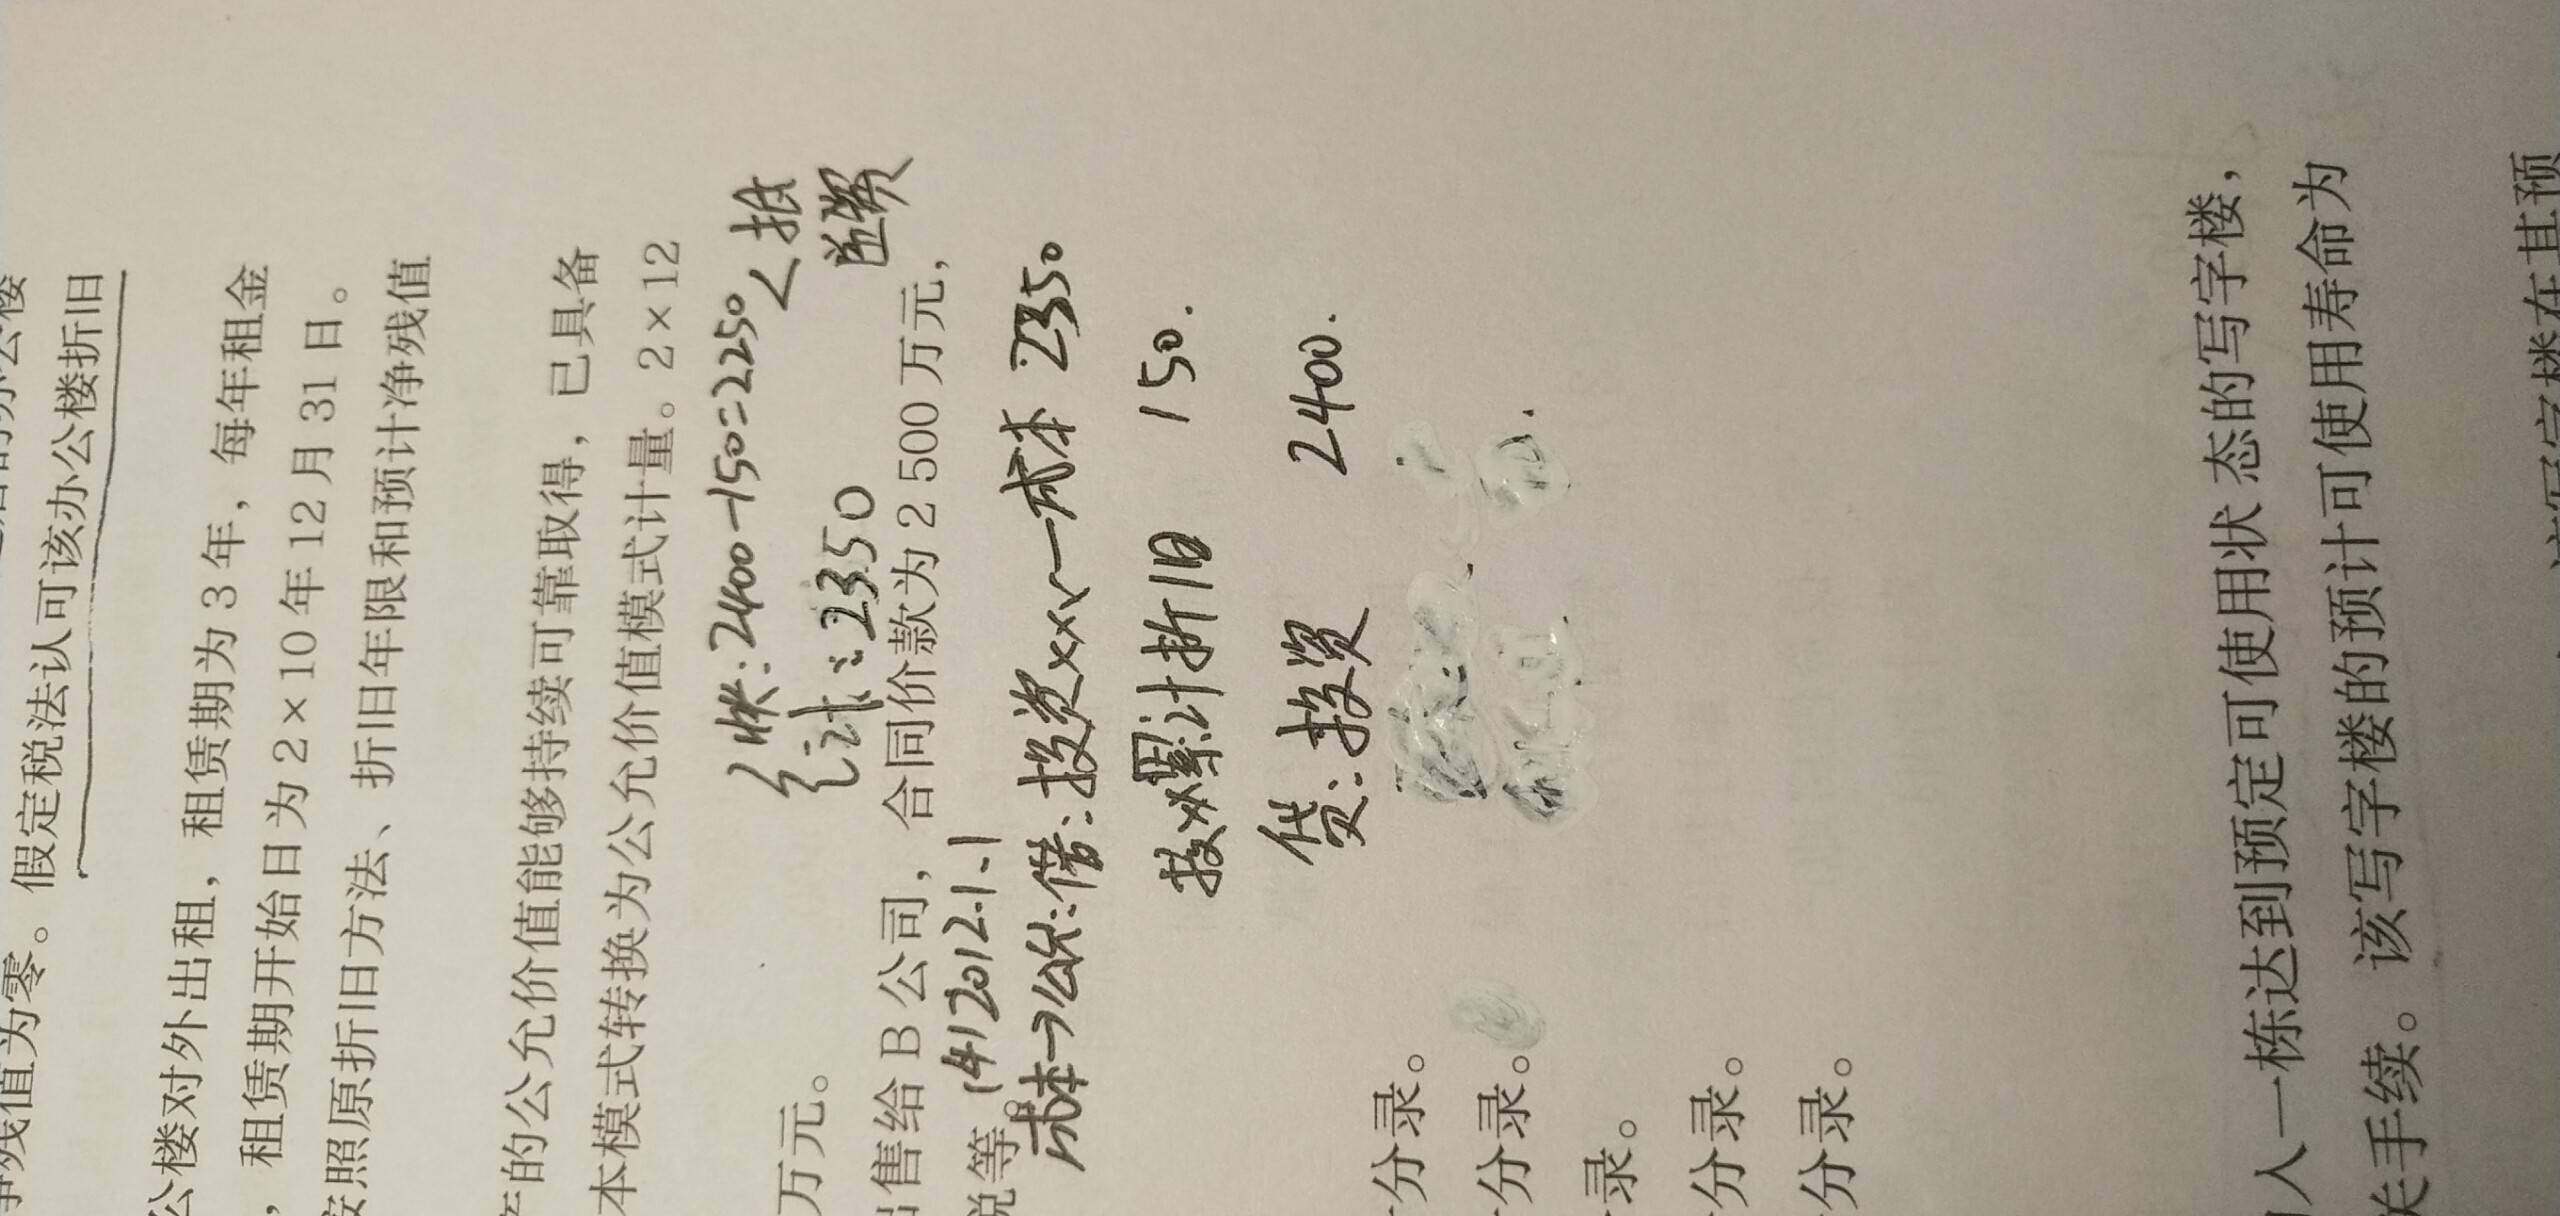 的办公楼
残值为零。假定税法认可该办公楼折旧
公楼对外出租，租赁期为3年，每年租金
，租赁期开始日为2×10年12月31日。
按照原折旧方法、折旧年限和预计净残值
的公允价值能够持续可靠取得，已具备
本模式转换为公允价值模式计量。2×12
账：2400-150=2250
计：2350
<
万元。
售给B公司，合同价款为2 500万元，
税等。
(4)2012.1.1
成本→公允：借：投资xxx—成本 2350
投xx累计折旧 150.
贷：投资 2400.
分录。
分录。
录。
分录。
分录。
入一栋达到预定可使用状态的写字楼，
关手续。该写字楼的预计可使用寿命为
该写字楼在其预